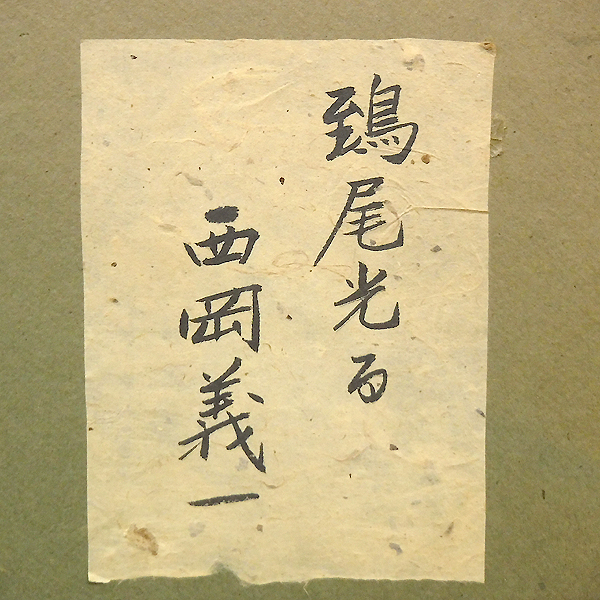 鵄尾光る
西岡義一